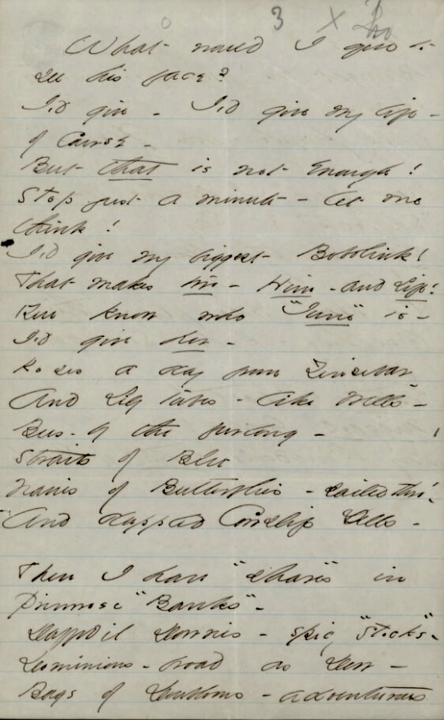 3 X
What would I give to
see his face?
I'd give - I'd give my life -
of course -
But that is not enough!
Stop just a minute - let me
think!
I'd give my biggest Bobolink!
That makes two - Him - and Life!
You know who "June" is -
I'd give her -
Roses a day from Zinzebar
And Lily tubes - like Wells -
Bees - by the furlong -
Straits of Blue
Navies of Butterflies - sailed thro'
And dappled Cowslip Dells -
Then I have "shares" in
Primrose "Banks" -
Daffodil Dowries - spicy "Stocks" -
Dominions - broad as Dew -
Bags of Doubloons - adventurous